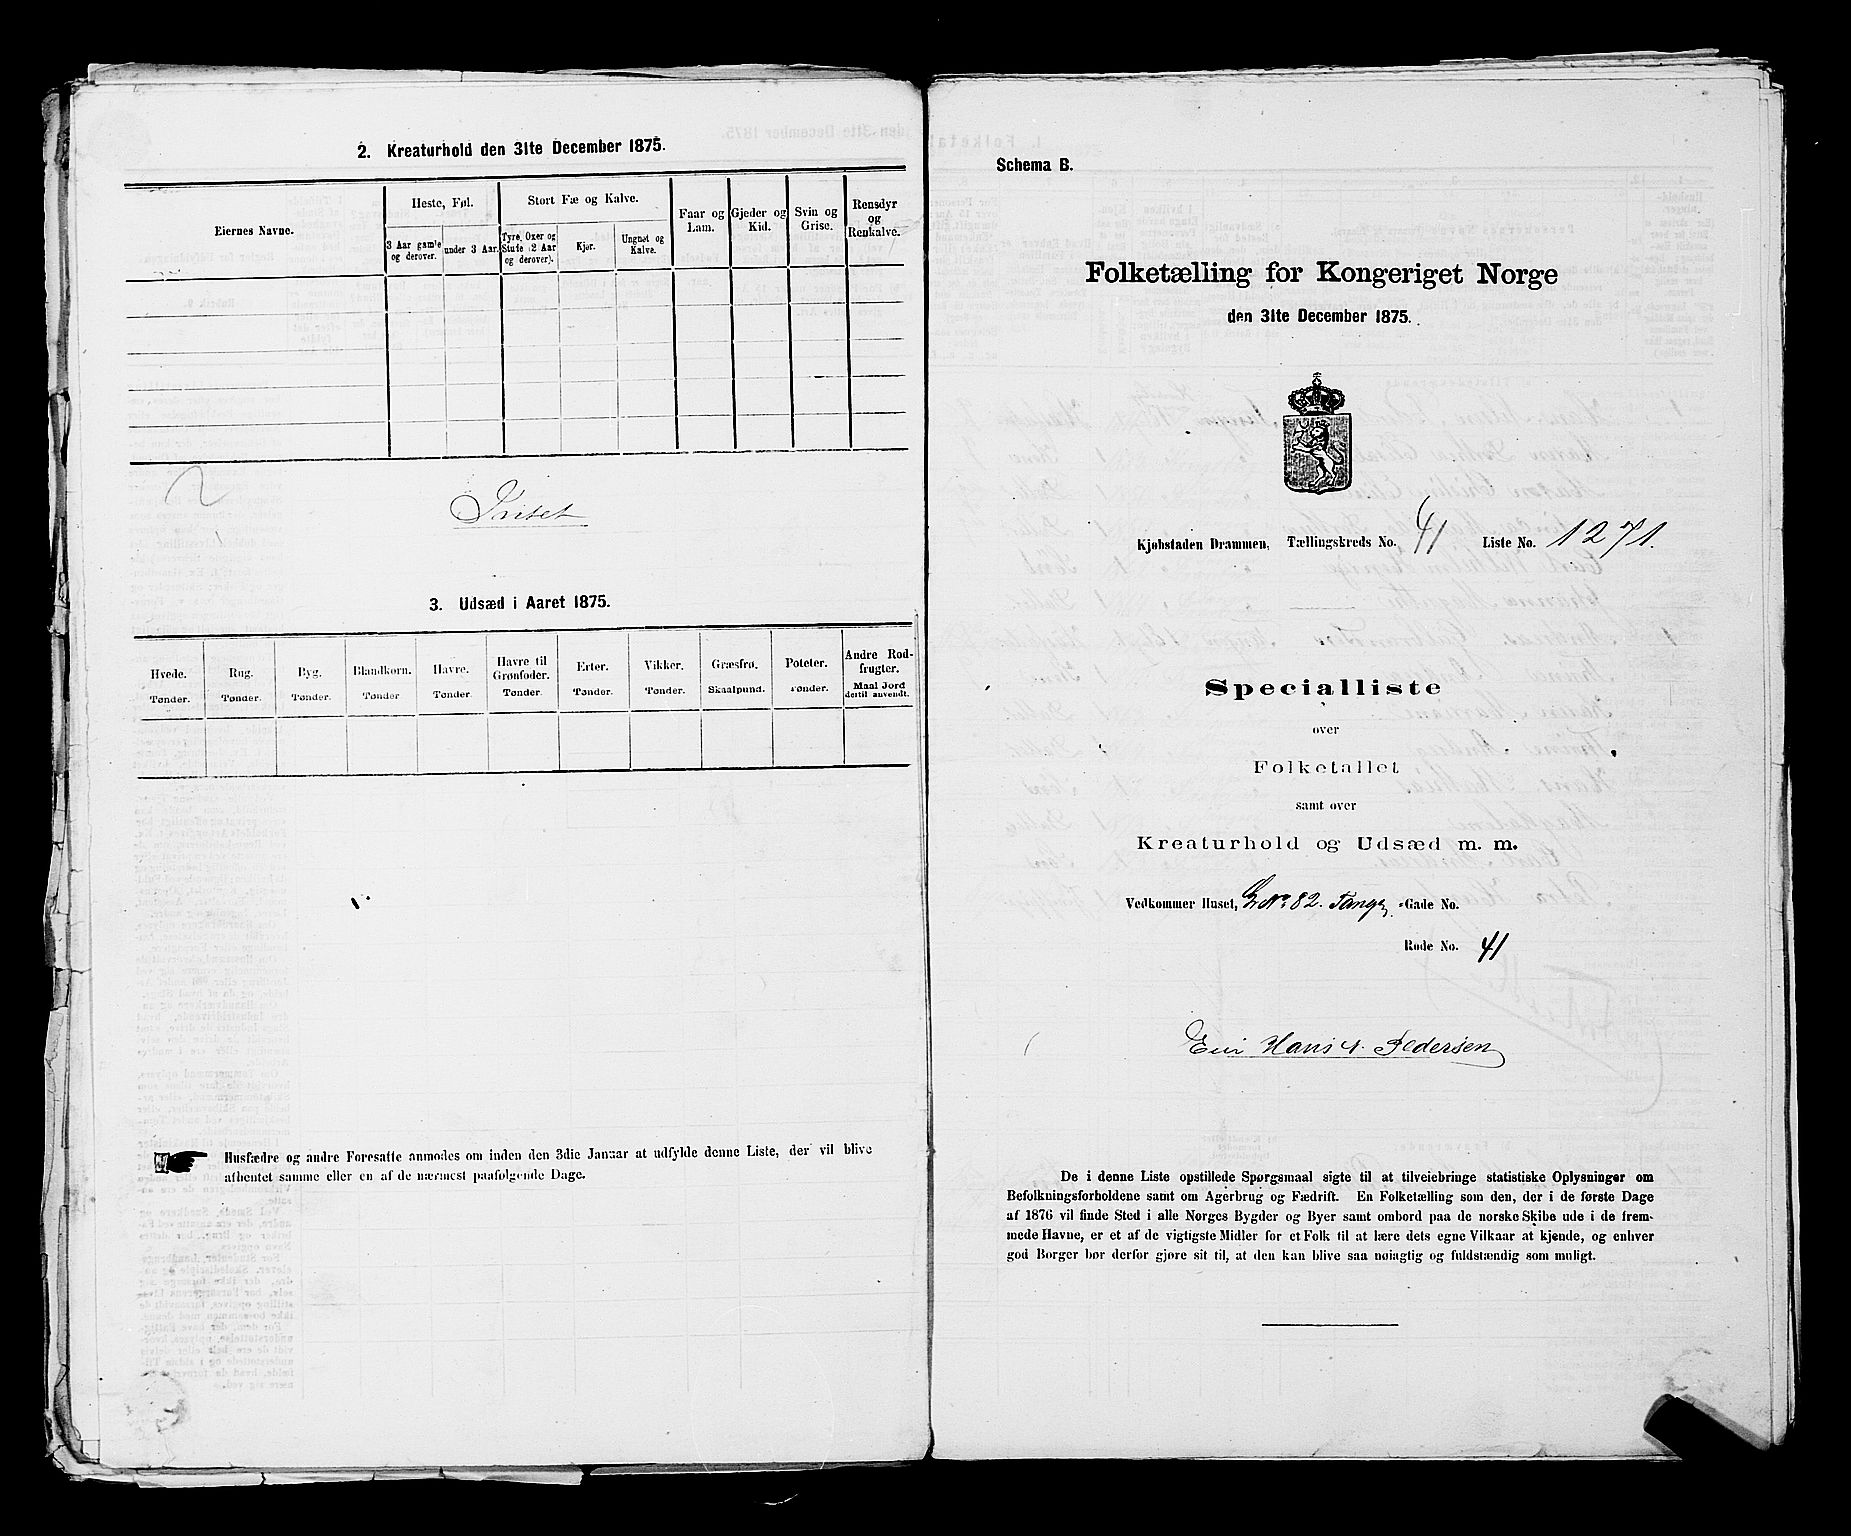 2. Kreaturhold den 31te December 1875.
Eiernes Navne.
Heste, Føl.
3 Aar gamle og derover.
under 3 Aar.
Stort Fæ og Kalve.
Tyre, Oxer og Stude (2 Aar og derover).
Kjør.
Ungnøt og Kalve.
Faar og Lam.
Gjeder og Kid.
Svin og Grise.
Rensdyr og Renkalve.
3. Udsæd i Aaret 1875.
Hvede. Tønder.
Rug. Tønder.
Byg. Tønder.
Blandkorn. Tønder
Havre. Tønder.
Havre til Grønfoder. Tønder.
Erter. Tønder.
Vikker. Tønder.
Græsfrø. Skaalpund.
Poteter. Tønder.
Andre Rodfrugter. Maal Jord dertil anvendt.
Husfædre og andre Foresatte anmodes om inden den 3die Januar at udfylde denne Liste, der vil blive
afhentet samme eller en af de nærmest paafølgende Dage.
Schema B.
Folketælling for Kongeriget Norge
den 31te December 1875.
Kjøbstaden Drammen, Tællingskreds No. 41 Liste No. 1271.
Specialliste
over
Folketallet
samt over
Kreaturhold og Udsæd m. m.
Vedkommer Huset, G No. 82. Tangen -Gade No.
Rode No. 41
Eier Hans A. Pedersen
De i denne Liste opstillede Spørgsmaal sigte til at tilveiebringe statistiske Oplysninger om
Befolkningsforholdene samt om Agerbrug og Fædrift. En Folketælling som den, der i de første Dage
af 1876 vil finde Sted i alle Norges Bygder og Byer samt ombord paa de norske Skibe ude i de frem-
mede Havne, er et af de vigtigste Midler for et Folk til at lære dets egne Vilkaar at kjende, og enhver
god Borger bør derfor gjøre sit til, at den kan blive saa nøiagtig og fuldstændig som muligt.